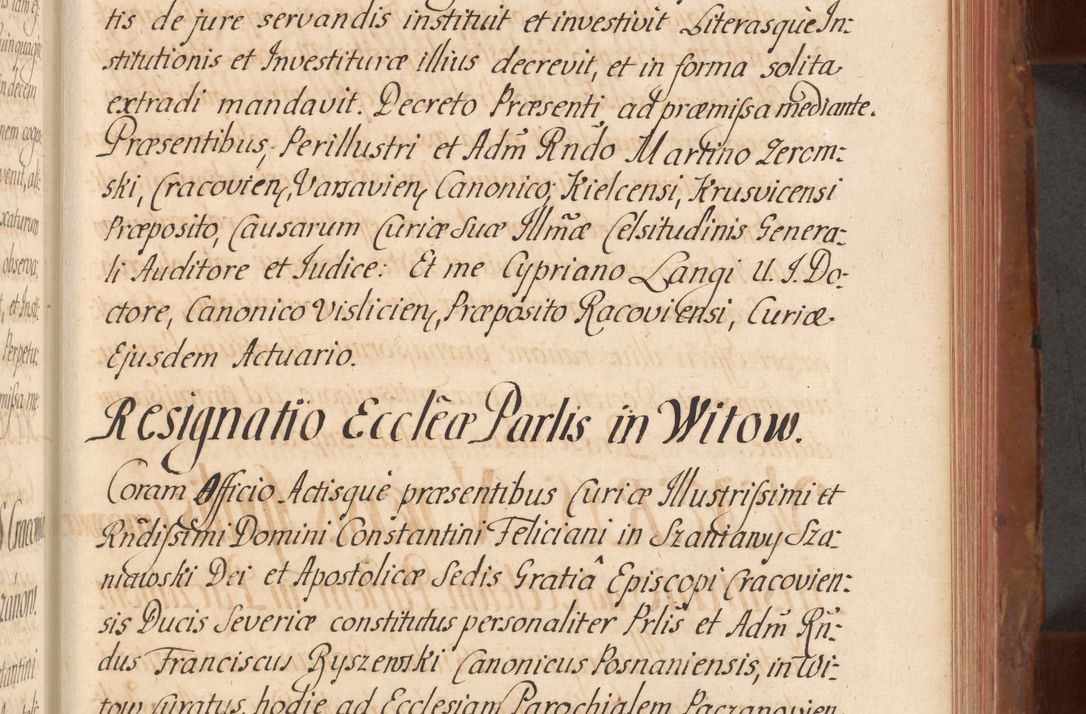 tis de jure servandis instituit et investivit Literasque In:
stitutionis et Investituræ illius decrevit, et in forma solita
extradi mandavit. Decreto Præsenti ad præmissa mediante.
Præsentibus, Perillustri et Adm̃ Rñdo Martino Zerom:
ski, Cracovien, Varsavien, Canonico, Kielcensi, Krusvicensi
Præposito, Causarum Curiæ Suæ Illm̃æ Celsitudinis Genera:
li Auditore et Iudice: Et me Cypriano Langi U. I. Do-
ctore, Canonico Vislicien, Præposito Racoviensi, Curiæ
Ejusdem Actuario.
Resignatio Ecclẽæ Parlis in Witow.
Coram Officio Actisque præsentibus Curiæ Illustrissimi et
Rñdissimi Domini Constantini Feliciani in Szaniawy Sza:
niawski Dei et Apostolicæ Sedis Gratiâ Episcopi Cracovien:
sis Ducis Severiæ constitutus personaliter Prlis et Adm̃ Rñ:
dus Franciscus Ryszewski Canonicus Posnaniensis, in Wi:
tow Curatus, hodie ad Ecclesiam Parochialem Paczanovien